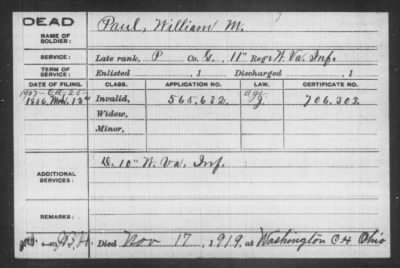 DEAD
NAME OF SOLDIER: Paul, William M.
SERVICE: Late rank, P Co. G, 11" Reg't W. Va. Inf.
TERM OF SERVICE: Enlisted , 1 Discharged , 1
DATE OF FILING. CLASS. APPLICATION NO. LAW. CERTIFICATE NO.
1907 Oct. 25
1886, 12" Invalid, 565,632 J 706,303
Widow,
Minor,
ADDITIONAL SERVICES: D. 10" W. Va. Inf.
REMARKS:
Died Nov 17, 1919, at Washington C H Ohio